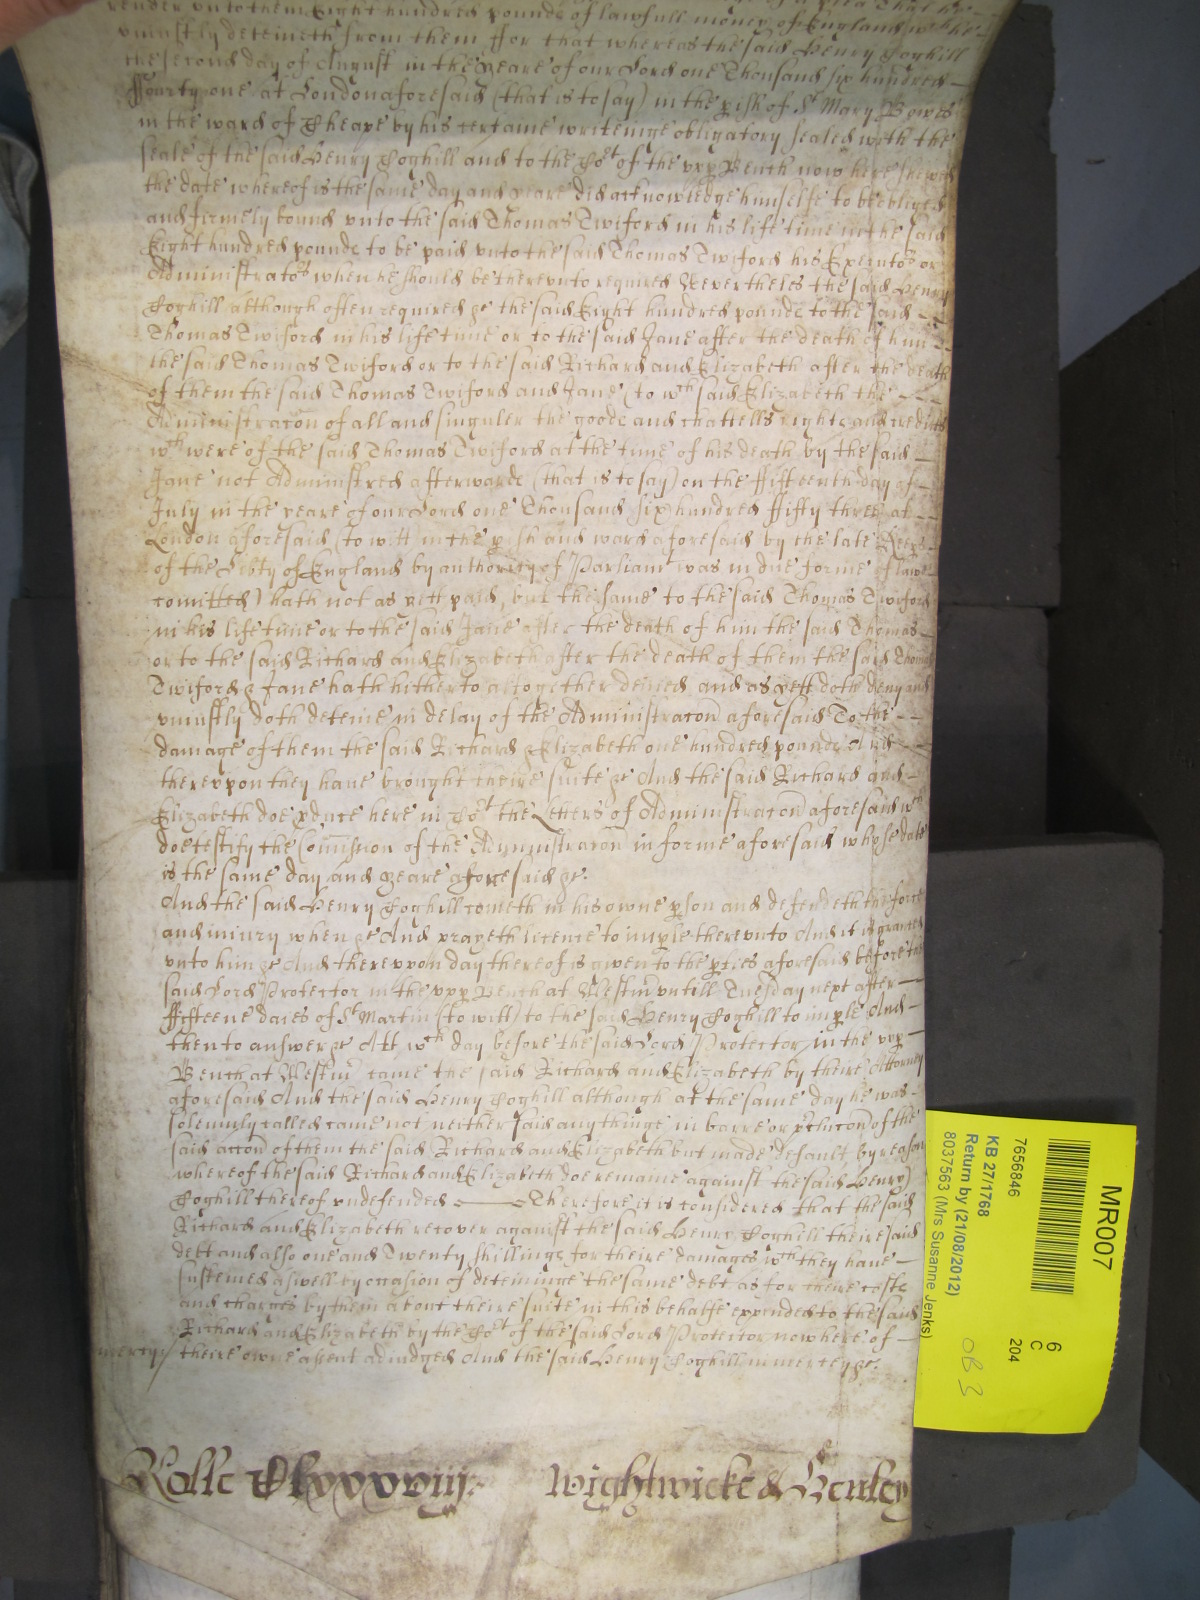 render unto them Eight hundred pounds of lawfull money of England wch he
uniustly deteineth from them ffor that whereas the said Henry Coghill
the second day of August in the yeare of our Lord one Thousand six hundred
ffourty one at London aforesaid (that is to say) in the pish of St Mary Bowes
in the ward of Cheape by his certaine writeinge obligatory sealed with the
seale of the said Henry Coghill and to the Cort of the vpp Bench now here shewed
the date whereof is the same day and yeare did acknowledge himselfe to bee obliged
and firmely bound vnto the said Thomas Twiford in his life time in the said
Eight hundred pounds to be paid vnto the said Thomas Twiford his Executors or
Administrators when he should be therevnto required Neverthelesse the said Henry
Coghill although often required &c the said Eight hundred pounds to the said
Thomas Twiford in his life time or to the said Jane after the death of him
the said Thomas Twiford or to the said Richard and Elizabeth after the death
of them the said Thomas Twiford and Jane (to wch said Elizabeth the
Administracon of all and singuler the goods and chattells rights and credits
wch were of the said Thomas Twiford at the time of his death by the said
Jane not Administred afterwards (that is to say) on the ffifteenth day of
July in the yeare of our Lord one Thousand six hundred ffifty three at
London aforesaid (to witt) in the pish and ward aforesaid by the late Keeps
of the Libty of England by authority of Parliamt was in due forme of lawe
comitted) hath not as yett paid, but the same to the said Thomas Twiford
in his life time or to the said Jane after the death of him the said Thomas
or to the said Richard and Elizabeth after the death of them the said Thomas
Twiford & Jane hath hitherto altogether denied and as yett doth deny and
uniustly doth deteine in delay of the Administracon aforesaid To the
damage of them the said Richard & Elizabeth one hundred pounds And
therevpon they haue brought theire suite &c And the said Richard and
Elizabeth doe pduce here in Cort the Letters of Administracon aforesaid wch
doe testify the Comission of the Administracon in forme aforesaid whose date
is the same day and yeare aforesaid &c.
And the said Henry Coghill cometh in his owne pson and defendeth the force
and iniury when &c And prayeth licence to imple therevnto And it is granted
vnto him &c And therevpon day thereof is given to the pties aforesaid before the
said Lord Protector in the vpp Bench at Westm vntill Tuesday next after
ffifteene daies of St Martin (to witt) to the said Henry Coghill to imple And
then to answer &c Att wch day before the said Lord Protector in the vpp
Bench at Westm came the said Richard and Elizabeth by theire Attorney
aforesaid And the said Henry Coghill although at the same day he was
solemnly called came not neither said any thinge in barre or pclucon of the
said accon of them the said Richard and Elizabeth but made default by reason
whereof the said Richard and Elizabeth doe remaine against the said Henry
Coghill thereof vndefended Therefore it is considered that the said
Richard and Elizabeth recover against the said Henry Coghill theire said
debt and also one and Twenty shillings for theire damages wch they haue
susteined aswell by occasion of deteininge the same debt as for theire costs
and charges by them about theire suite in this behalfe expended to the said
Richard and Elizabeth by the Cort of the said Lord Protector now here of
mercy theire owne assent adiudged And the said Henry Coghill in mercy &c.
Rolle Clxxxviij. Wightwicke &
MR007
7656846
KB 27/1768
Return by (21/08/2012)
8037563 (Mrs Susanne Jenks)
6
C
204
OB 3